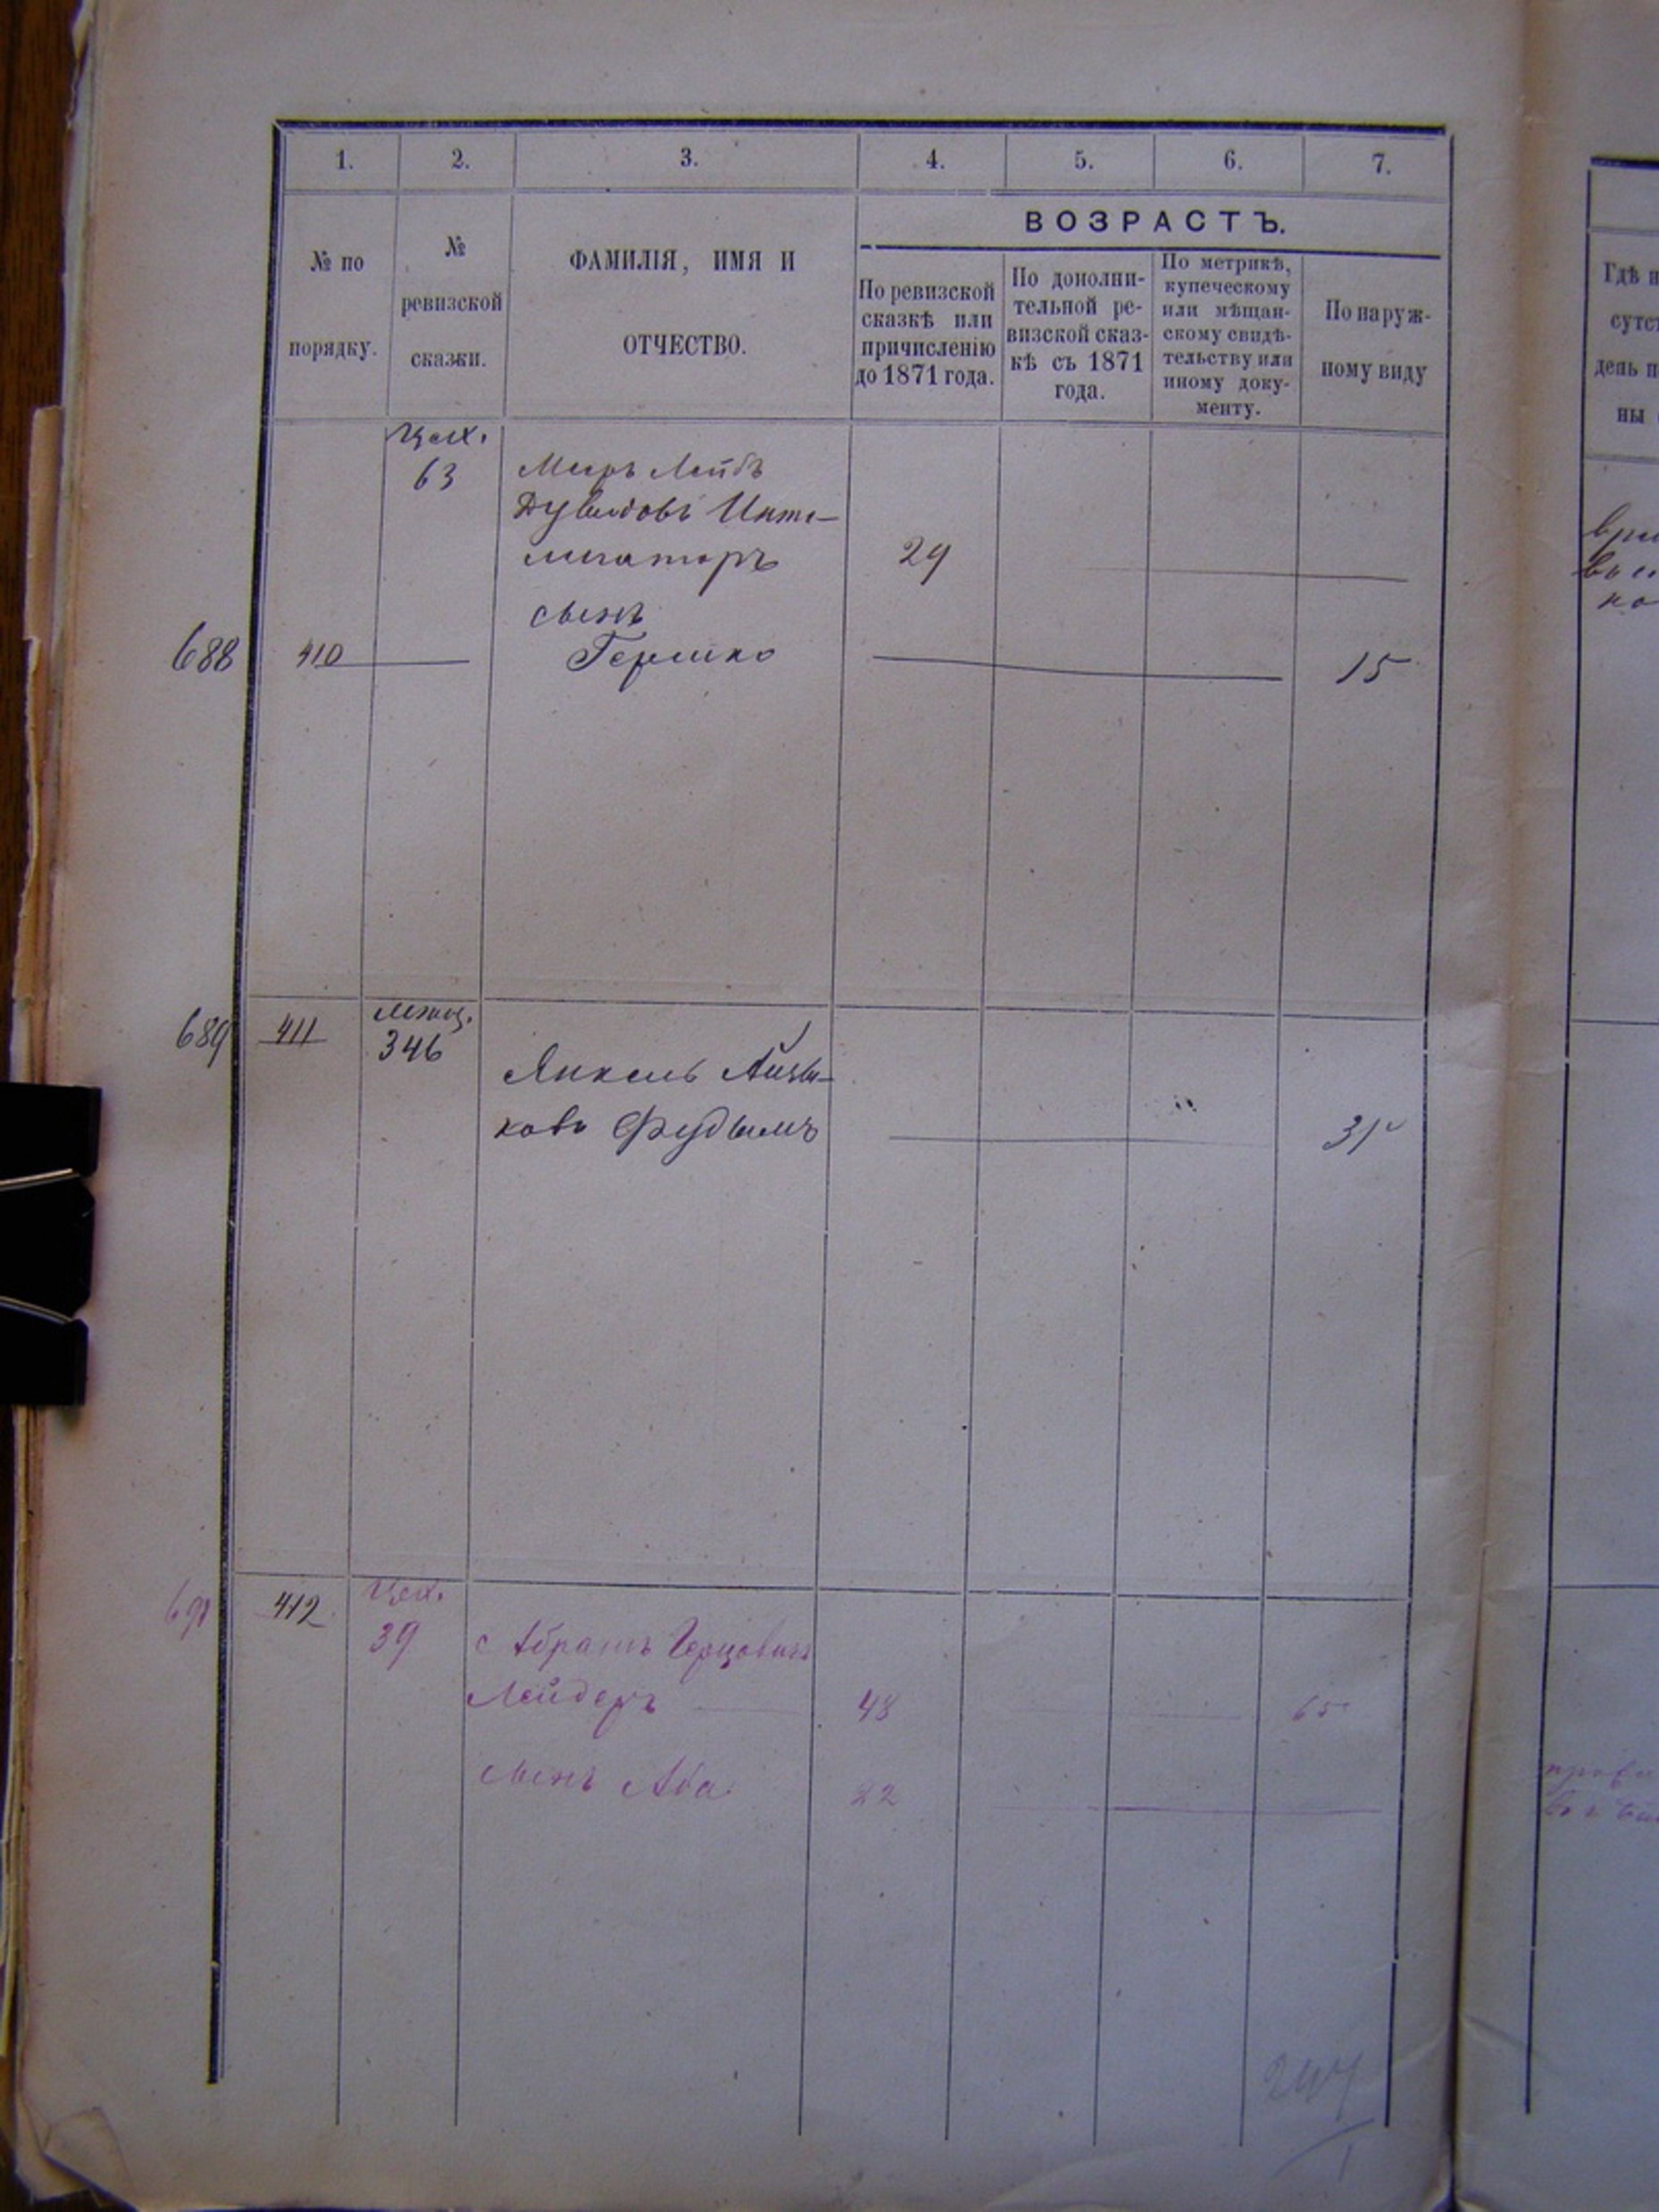 1. 2. 3. 4. 5. 6. 7.
№ по
порядку.
№
ревизской
сказки.
ФАМИЛІЯ, ИМЯ И
ОТЧЕСТВО.
ВОЗРАСТЪ.
По ревизской
сказкѣ или
причисленію
до 1871 года.
По дополни-
тельной ре-
визской сказ-
кѣ съ 1871
года.
По метрикѣ,
купеческому
или мѣщан-
скому свидѣ-
тельству или
иному доку-
менту.
По наруж-
ному виду
Гдѣ
день
ны
Цех.
63 Меръ Лейбъ
Дувидовъ Инте-
лигаторъ 29
сынъ
688 410 Гершко 15
689 411 346
Янкель Айзи-
ковъ Фудымъ 31
412 Цех.
39 Абрамъ Герцовичъ
Лейдеръ 48 65
сынъ Аба 22